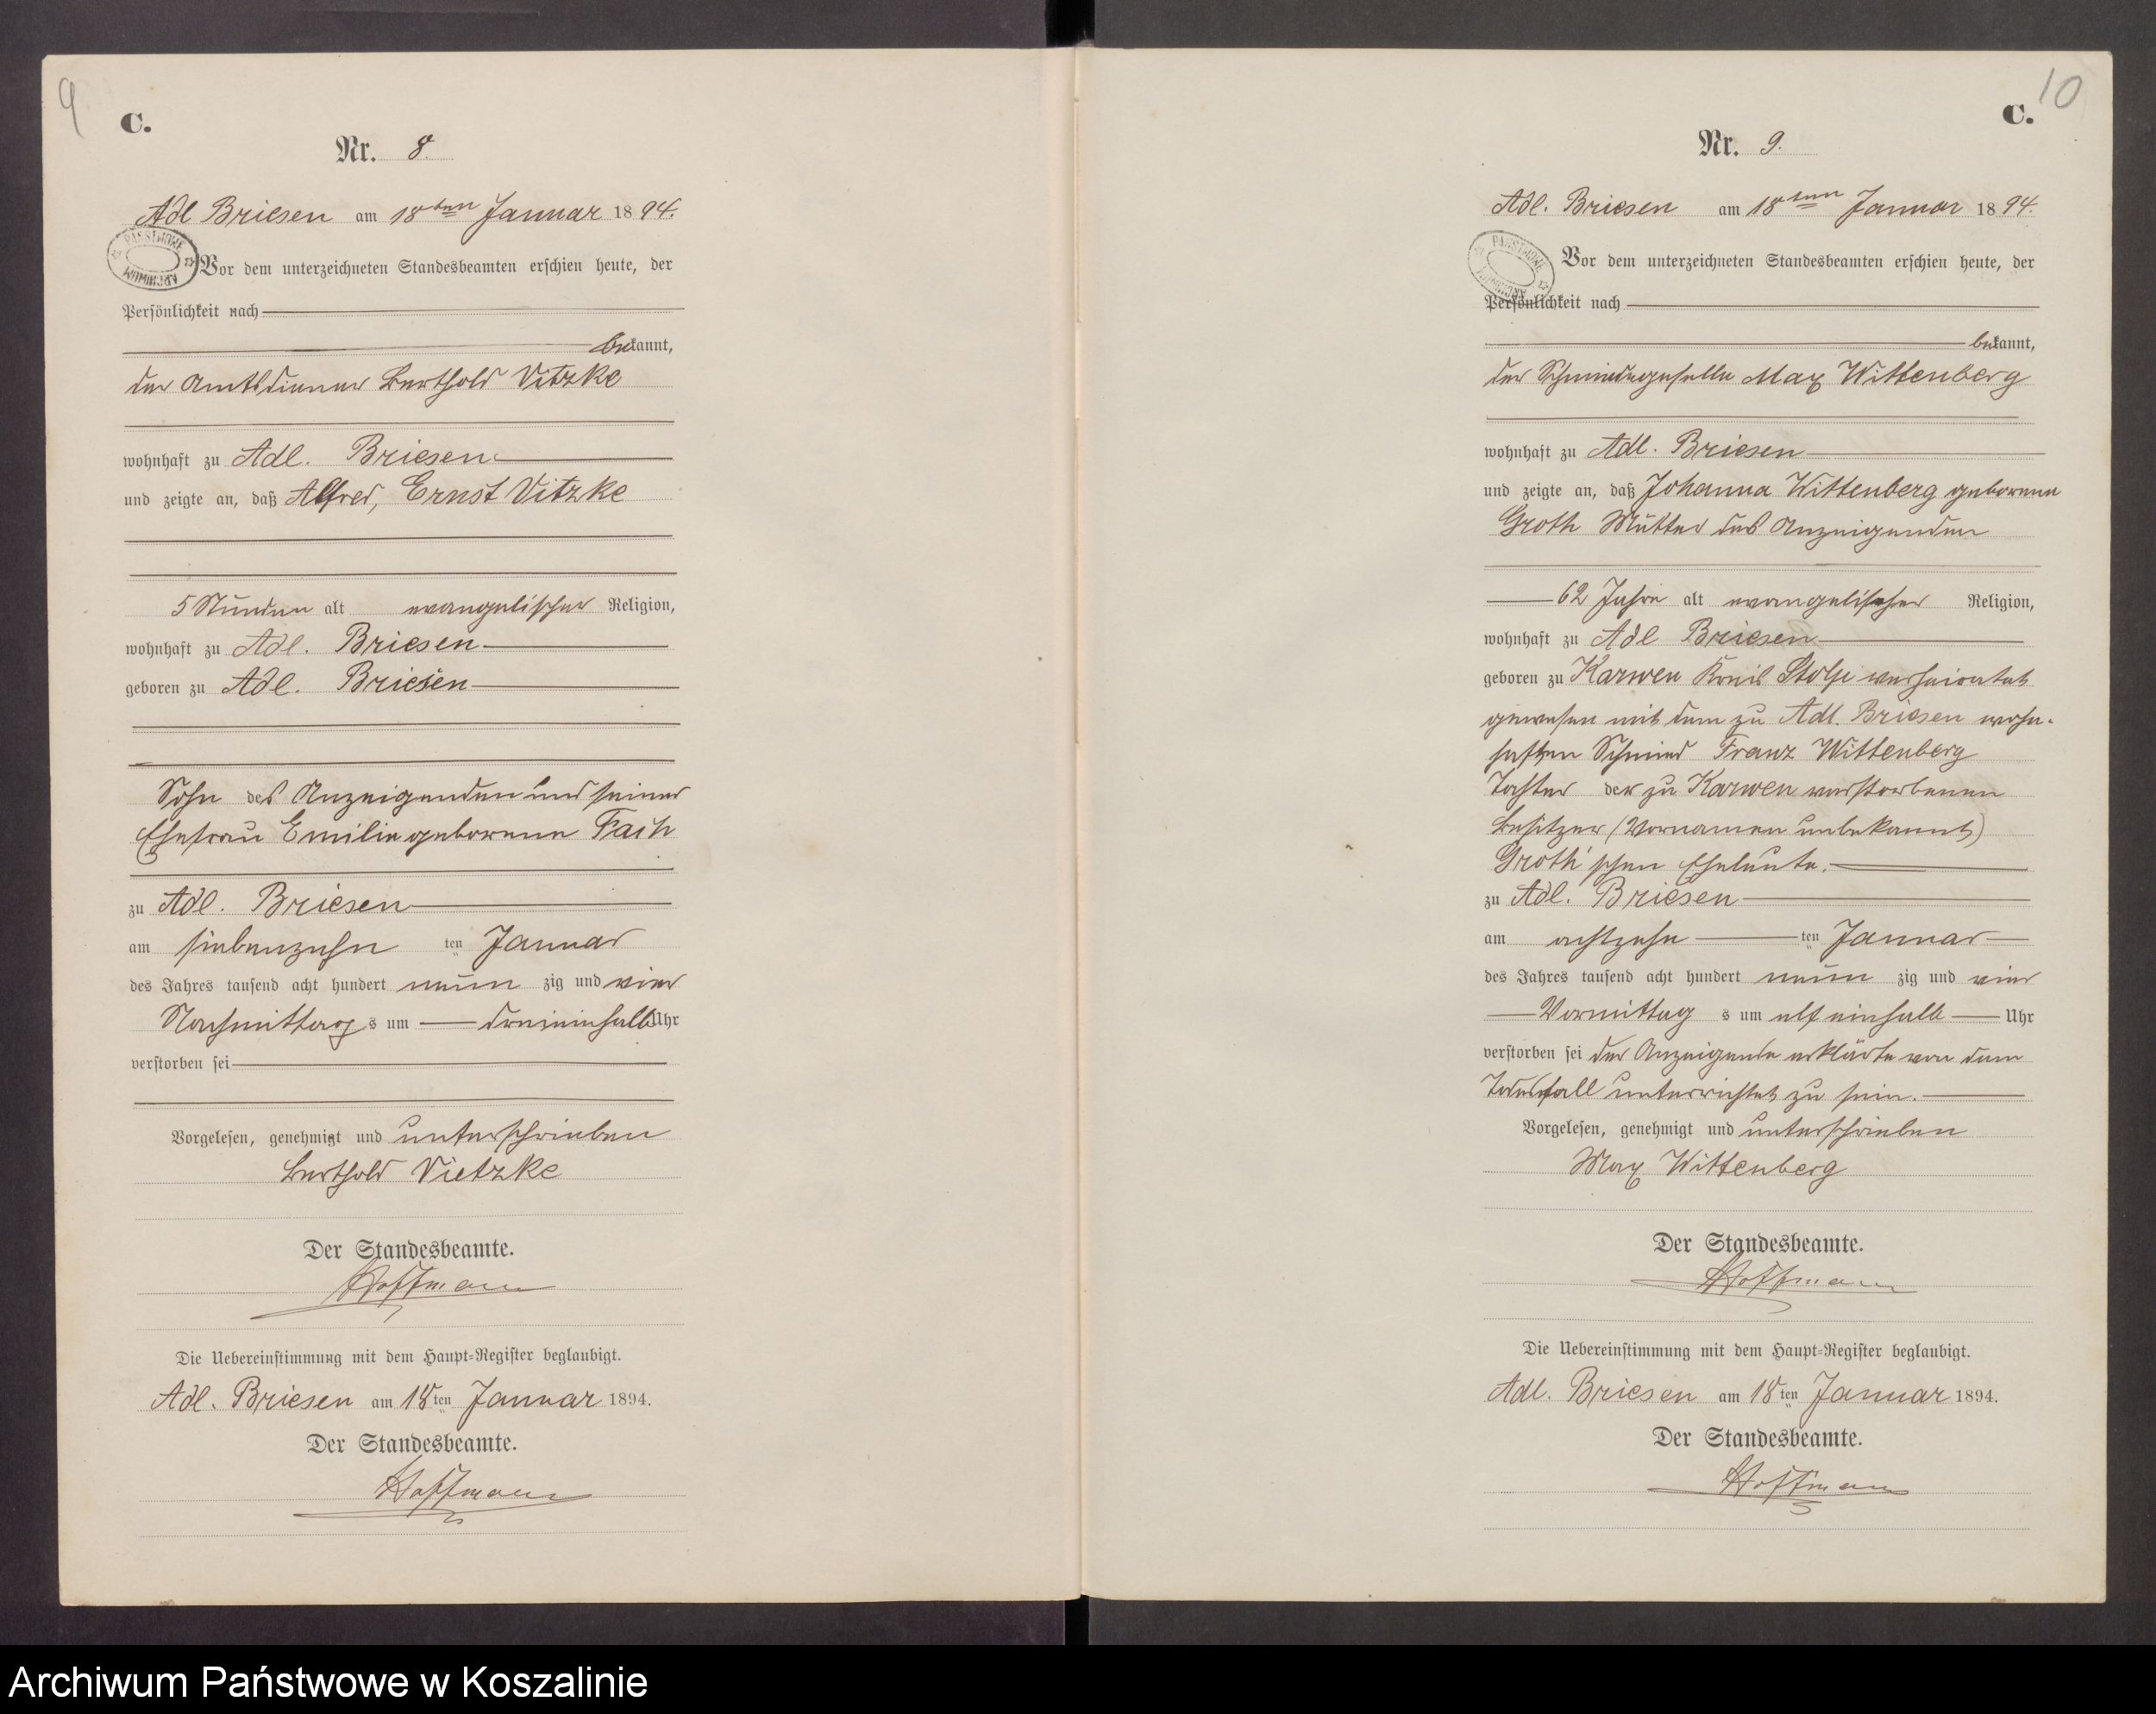 9
C.
Nr. 8.
Adl Briesen am 18ten Januar 1894.
PAŃSTWOWE ARCHIWUM
Vor dem unterzeichneten Standesbeamten erschien heute, der
Persönlichkeit nach
bekannt,
der Amtsdiener Berthold Vitzke
wohnhaft zu Adl. Briesen
und zeigte an, daß Alfred, Ernst Vitzke
5 Stunden alt evangelischer Religion,
wohnhaft zu Adl. Briesen
geboren zu Adl. Briesen
Sohn des Anzeigenden und seiner
Ehefrau Emilie geborene
zu Adl. Briesen
am siebenzehn ten Januar
des Jahres tausend acht hundert neun zig und vier
Nachmittags um dreieinhalb Uhr
verstorben sei
Vorgelesen, genehmigt und unterschrieben
Berthold Vietzke
Der Standesbeamte.
Hoffmann
Die Uebereinstimmung mit dem Haupt-Register beglaubigt.
Adl. Briesen am 18ten Januar 1894.
Der Standesbeamte.
Hoffmann
10
C.
Nr. 9.
Adl. Briesen am 18ten Januar 1894.
PAŃSTWOWE ARCHIWUM
Vor dem unterzeichneten Standesbeamten erschien heute, der
Persönlichkeit nach
bekannt,
der Schmiedegeselle Max Wittenberg
wohnhaft zu Adl. Briesen
und zeigte an, daß Johanna Wittenberg geborene
Groth Mutter des Anzeigenden
62 Jahre alt evangelischer Religion,
wohnhaft zu Adl Briesen
geboren zu Karwen Kreis Stolp verheiratet
gewesen mit dem zu Adl. Briesen wohn-
haften Schmied Franz Wittenberg
Tochter der zu Karwen verstorbenen
Besitzer (Vornamen unbekannt)
Groth'schen Eheleute.
zu Adl. Briesen
am achtzehn ten Januar
des Jahres tausend acht hundert neun zig und vier
Vormittags um elf einhalb Uhr
verstorben sei der Anzeigende erklärte von dem
Todesfall unterrichtet zu sein.
Vorgelesen, genehmigt und unterschrieben
Max Wittenberg
Der Standesbeamte.
Hoffmann
Die Uebereinstimmung mit dem Haupt-Register beglaubigt.
Adl. Briesen am 18ten Januar 1894.
Der Standesbeamte.
Hoffmann
Archiwum Państwowe w Koszalinie